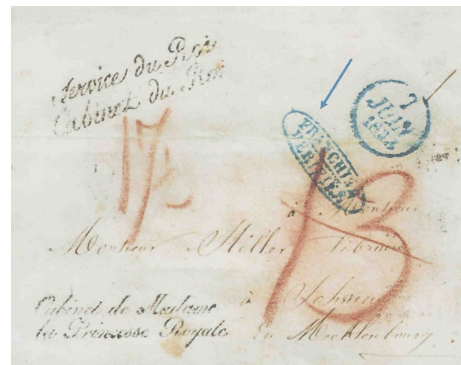 Service du Roi
Cabinet du Roi
7
JUIN
FRANCHISE
17
13
à Monsieur
Monsieur Libraire
à Schwerin
Cabinet de Madame
la Princesse Royale
En Mecklenbourg